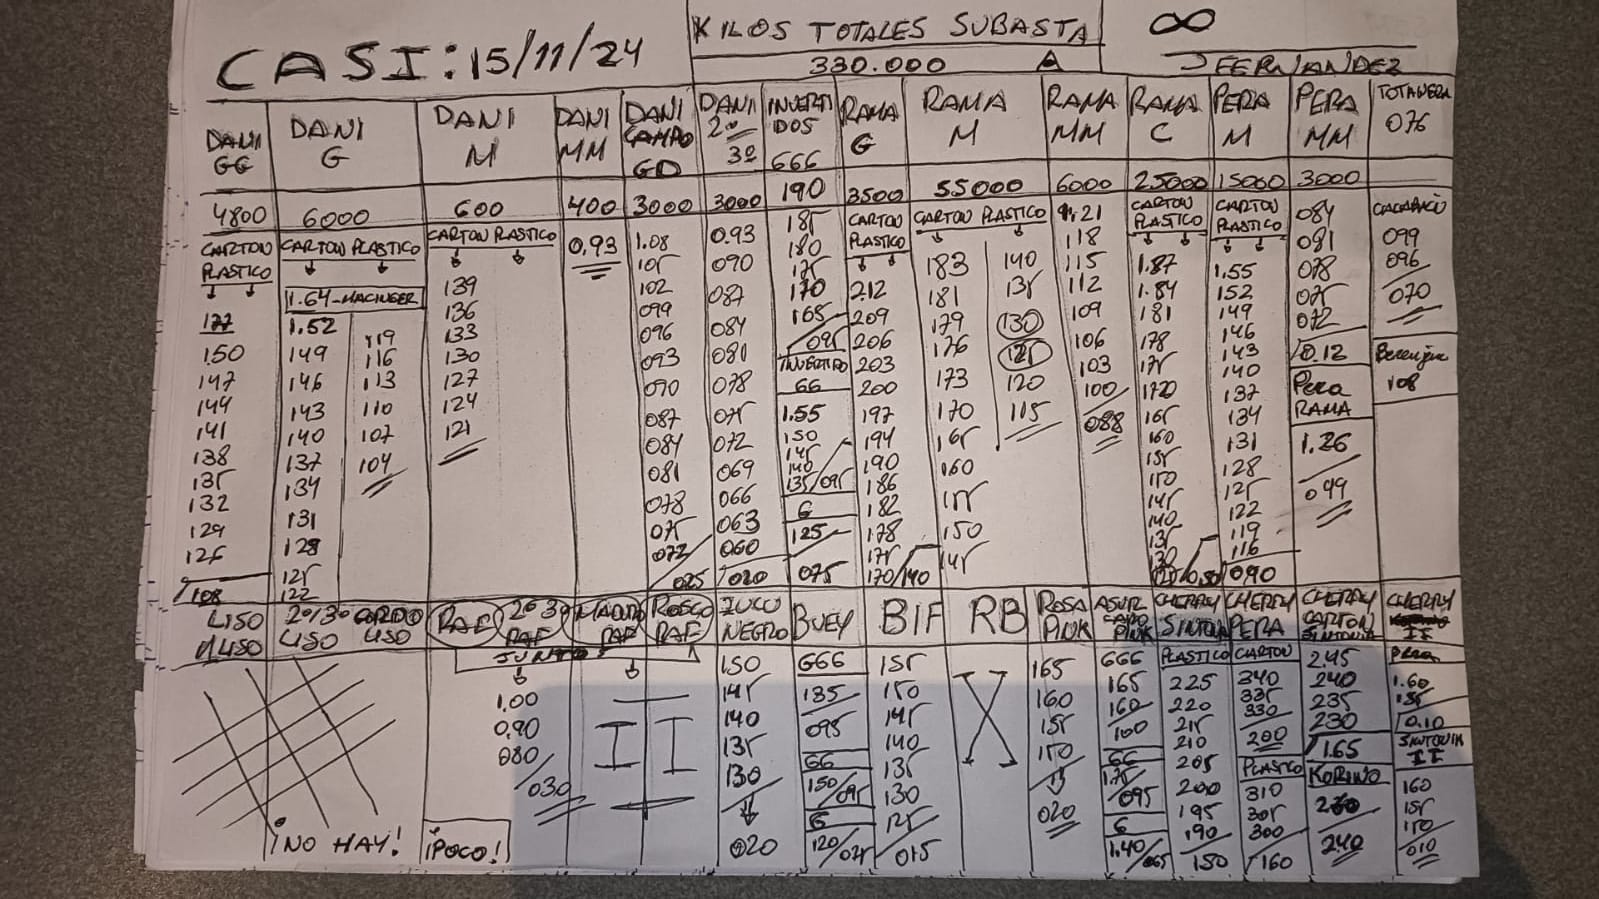 CASI: 15/11/24
KILOS TOTALES SUBASTA
330.000 A
∞
J FERNANDEZ
DANI GG
4800
CARTON
PLASTICO
177
150
147
144
141
138
135
132
129
126
108
DANI G
6000
CARTON PLASTICO
1.64-MACINGER
1.52
149
146
143
140
137
134
131
128
125
122
119
116
113
110
107
104
DANI M
600
CARTON PLASTICO
139
136
133
130
127
124
121
DANI MM
400
0,93
DANI CAMPO GD
3000
1.08
105
102
099
096
093
090
087
084
081
078
075
072
025
DANI 2º 3º
3000
0.93
090
087
084
081
078
075
072
069
066
063
060
020
INVERTI
DOS
666
190
185
180
175
170
165
095
INVERTIDO
66
1.55
150
145
140
135/095
G
125
075
RAMA G
3500
CARTON
PLASTICO
212
209
206
203
200
197
194
190
186
182
178
175
170/140
RAMA M
55000
CARTON PLASTICO
183
181
179
176
173
170
165
160
155
150
145
140
135
130
125
120
115
RAMA MM
6000
1.21
118
115
112
109
106
103
100
088
RAMA C
25000
CARTON
PLASTICO
1.87
1.84
181
178
175
170
165
160
155
150
145
140
135
130
PERA M
15000
CARTON
PLASTICO
1.55
152
149
146
143
140
137
134
131
128
125
122
119
116
090
PERA MM
3000
084
081
078
075
072
0.12
Pera
RAMA
1.26
099
TOTANERA
076
099
096
070
108
LISO
2º/3º LISO
GORDO LISO
¡NO HAY!
RAF
2º 3º RAF
MADURO RAF
ROSCO RAF
JUNTOS
1.00
0,90
080
030
¡POCO!
ZUCO
NEGRO
150
145
140
135
130
020
BUEY
GGG
135
095
GG
150/095
G
120/025
BIF
155
150
145
140
135
130
125
015
RB
ROSA
PINK
165
160
155
150
020
PINK
GGG
165
160
100
GG
1.75
095
G
1.40/065
CHERRY
SINTONIA
PLASTICO
225
220
215
210
205
200
195
190
150
CHERRY
PERA
CARTON
340
335
330
200
PLASTICO
310
305
300
160
CHERRY
CARTON
SINTONIA
2.45
240
235
230
1.65
KORINO
240
CHERRY
II
Pera
1.60
155
0.10
SINTONIA
II
160
155
150
010